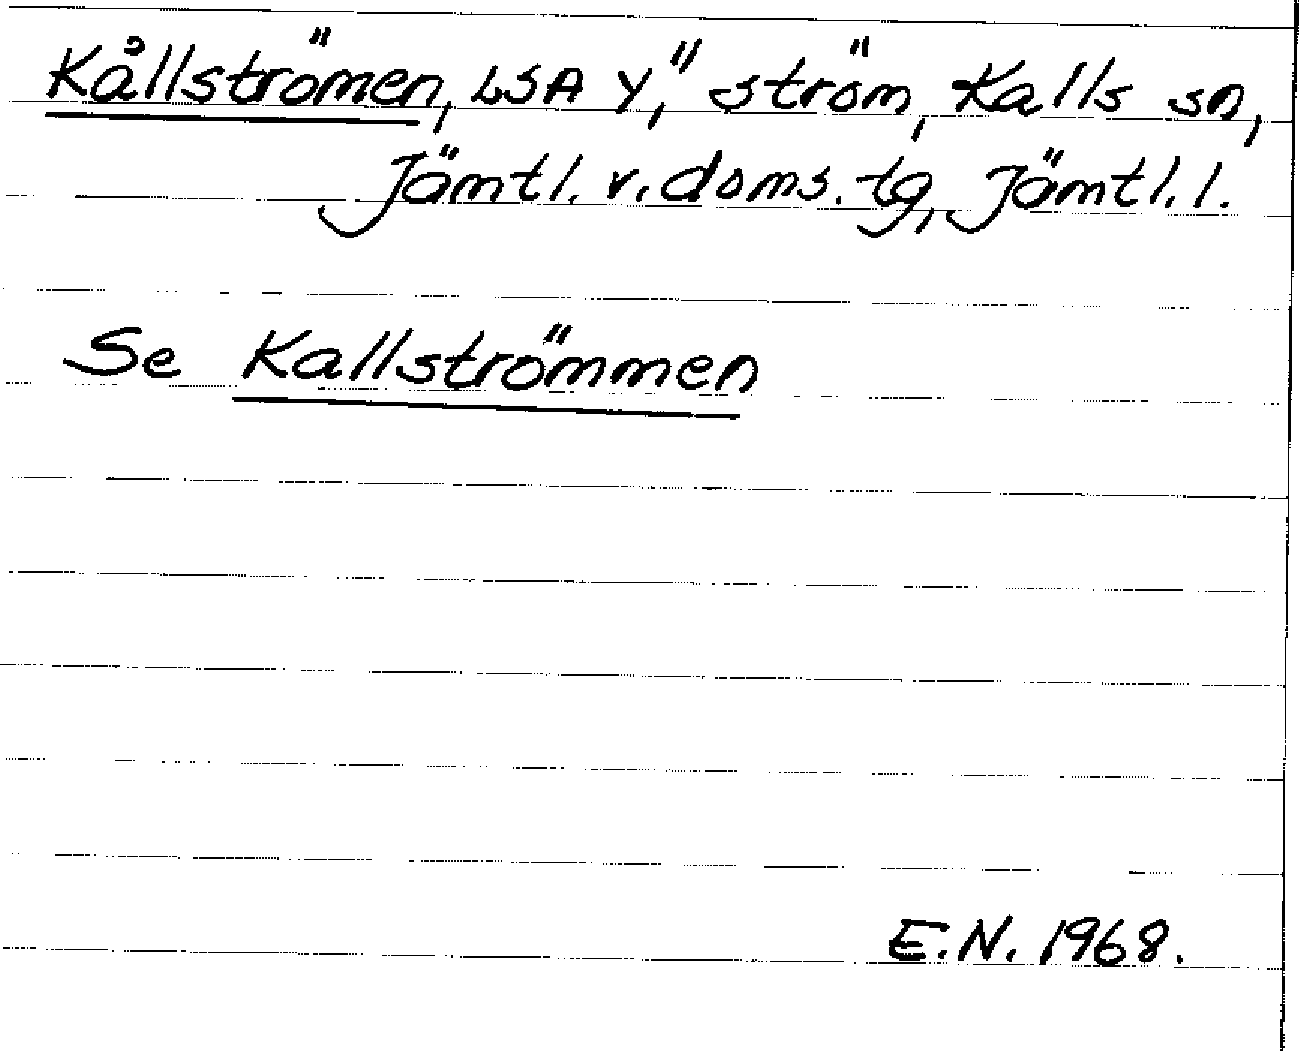 Kållströmen, LSA Y," ström, Kalls sn,
Jämtl. v. doms. tg, Jämtl. l.
Se Kallströmmen
E.N. 1968.